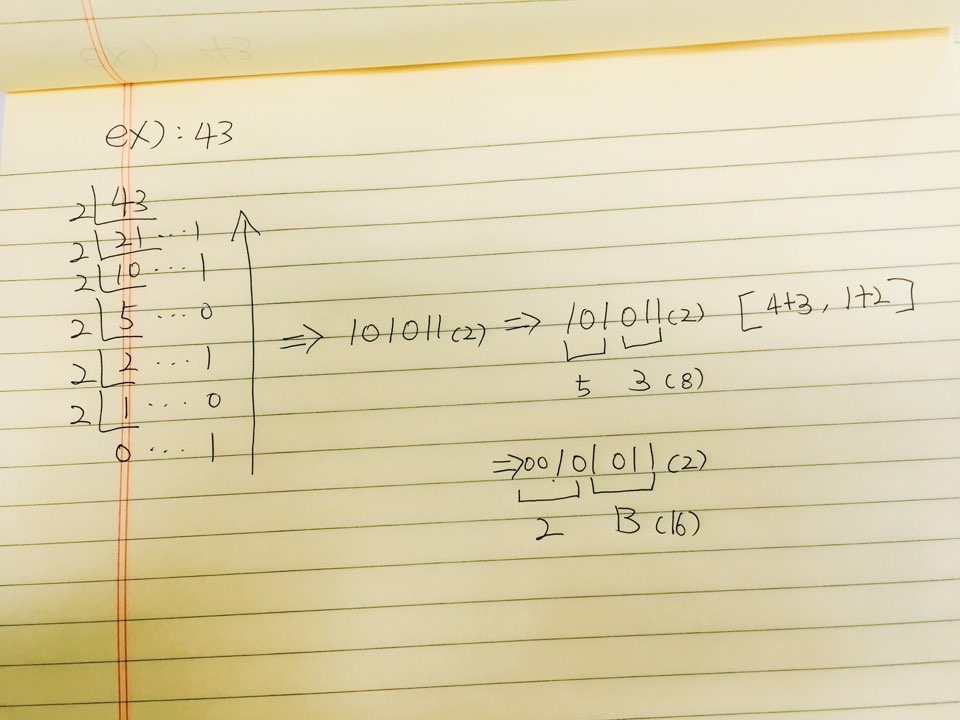 ex) : 43
2 43
2 21 ... 1
2 10 ... 1
2 5 ... 0
2 2 ... 1
2 1 ... 0
0 ... 1
⇒ 101011 (2) ⇒ 101011 (2) [4+3, 1+2]
5 3 (8)
⇒ 00101011 (2)
2 B (16)